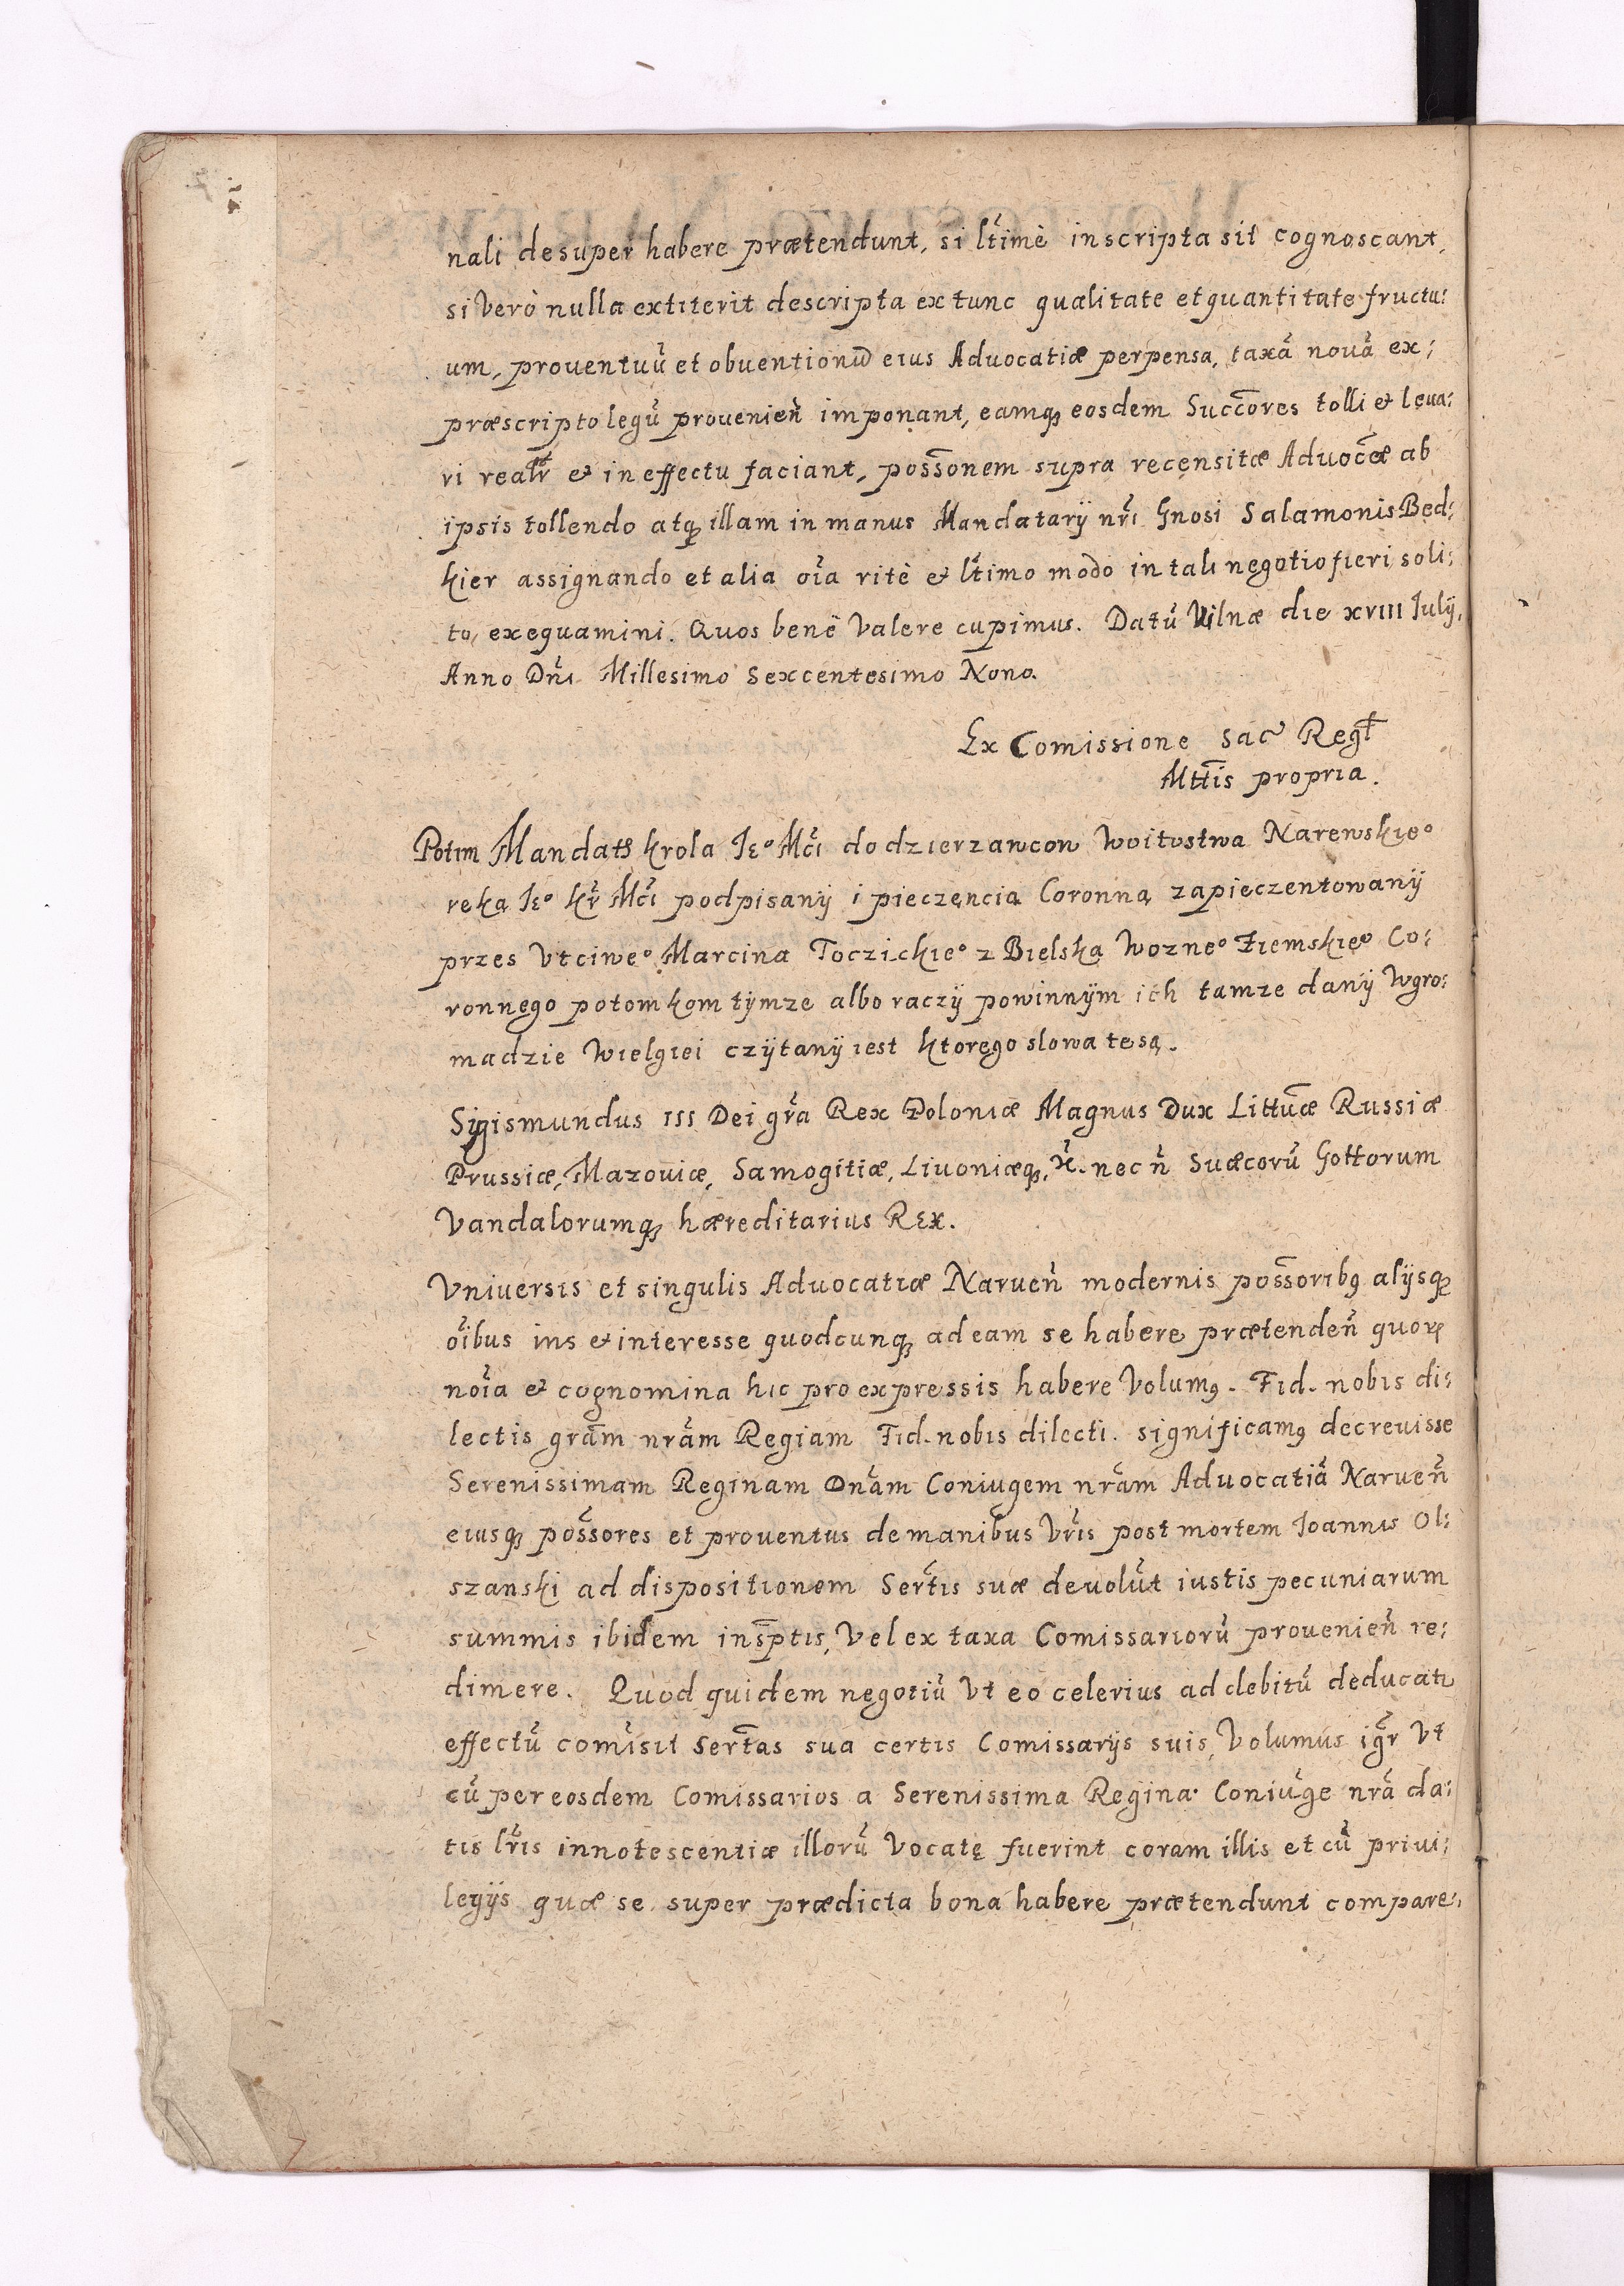 nali desuper habere prætendunt, si lt̃imè inscripta sit cognoscant,
si verò nulla extiterit descripta ex tunc qualitate et quantitate fructu:
um, prouentuũ et obuentionũ eius Aduocatiæ perpensa, taxã nouã ex:
præscripto legũ prouenien̄ imponant, eamq₃ eosdem Succ̄ores tolli & leua:
ri realr̄ & in effectu faciant, poss̄onem supra recensitæ Aduoc̄æ ab
ipsis tollendo atq₃ illam in manus Mandatarÿ nr̃i Gnosi Salamonis Bed:
kier assignando et alia oĩa ritè & lt̃imo modo in tali negotio fieri soli:
to, exequamini. Quos benè Valere cupimus. Datũ Vilnæ die xviii Julÿ,
Anno Dñi Millesimo Sexcentesimo Nono.
Ex Comissione Sac̃ Regt̄
Mtt̄is propria.
Potim Mandath krola Ie° Mc̃i do dzierzawcow Woitostwa Narewskie°
ręką Ie° kr̃ Mc̃i podpisanÿ i pieczęncią Coronną zapieczentowanÿ
przes Vtciwe° Marcina Toczickie° z Bielska Wozne° Ziemskie° Co:
ronnego potomkom tÿmze albo raczÿ powinnÿm ich tamze danÿ Wgro:
madzie Wielgiei czÿtanÿ iest ktorego slowa te są.
Sigismundus III Dei gr̃a Rex Poloniæ Magnus Dux Littūæ Russiæ
Prussiæ, Mazouiæ, Samogitiæ, Liuoniæq₃, &̃. nec ñ Suæcorũ Gottorum
Vandalorumq₃ hæreditarius Rex.
Vniuersis et singulis Aduocatiæ Naruen̄ modernis poss̄oribꝰ alÿsq₃
oĩbus ius & interesse quodcunq₃ ad eam se habere prætenden̄ quoꝝ
noĩa & cognomina hic pro expressis habere Volumꝰ. Fid. nobis di:
lectis grãm nrãm Regiam Fid. nobis dilecti. significamꝰ decreuisse
Serenissimam Reginam Dnãm Coniugem nrãm Aduocatiã Naruen̄
eiusq₃ poss̄ores et prouentus de manibus Vr̃is post mortem Joannis Ol:
szanski ad dispositionem Sert̃is suæ deuolũt iustis pecuniarum
summis ibidem ins̄ptis, Vel ex taxa Comissariorũ prouenien̄ re:
dimere. Quod quidem negotiũ Vt eo celerius ad debitũ deducatr
effectũ comĩsit Sert̄as sua certis Comissarÿs suis, Volumus ig̃r Vt
cũ per eosdem Comissarios a Serenissima Regina Coniuge nrã da:
tis lr̃is innotescentiæ illorũ Vocatę fuerint coram illis et cũ priui:
legÿs quæ se super prædicta bona habere prætendunt compare: